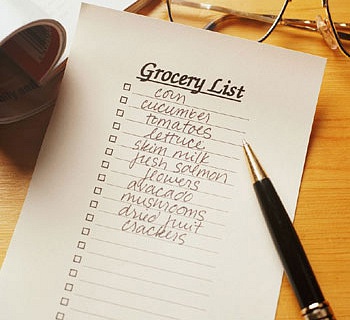 Grocery List
corn
cucumber
tomatoes
lettuce
skim milk
fresh salmon
flowers
avacado
mushrooms
dried fruit
crackers